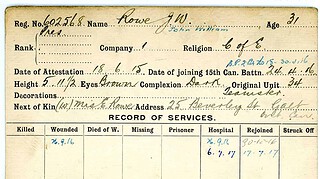 Reg. No. 602568. Name Rowe J.W. Age 31
John William
Rank Pres. Company 1 Religion C of E
Date of Attestation 18.6.15. Date of joining 15th Can. Battn. 24.4.16
Height 5' 11½ Eyes Brown Complexion Dark Original Unit 34
Decorations Teamster
Next of Kin (w) Mrs E Rowe Address 25 Beverley St Galt
Ont Can.
RECORD OF SERVICES.
Killed Wounded Died of W. Missing Prisoner Hospital Rejoined Struck Off
6.7.17 17.7.17